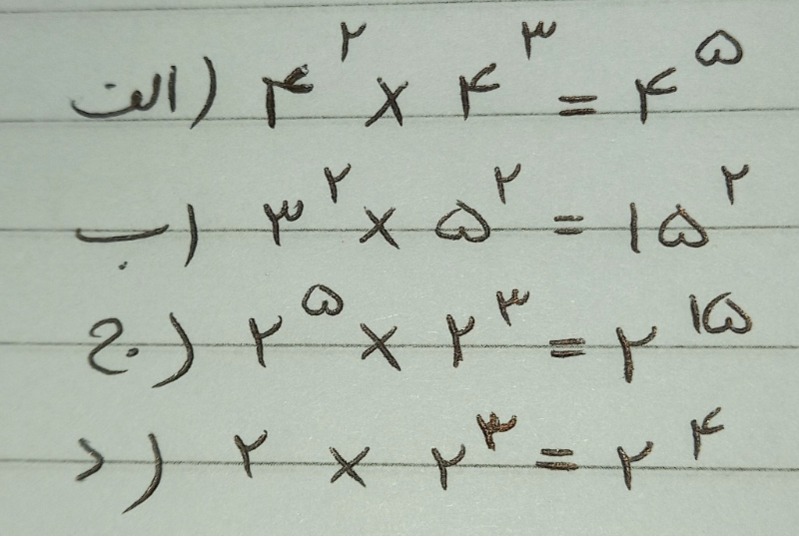 الف) ۴^۲ × ۴^۳ = ۴^۵
ب) ۳^۲ × ۵^۲ = ۱۵^۲
ج) ۲^۵ × ۲^۳ = ۲^۱۵
د) ۲ × ۲^۳ = ۲^۴